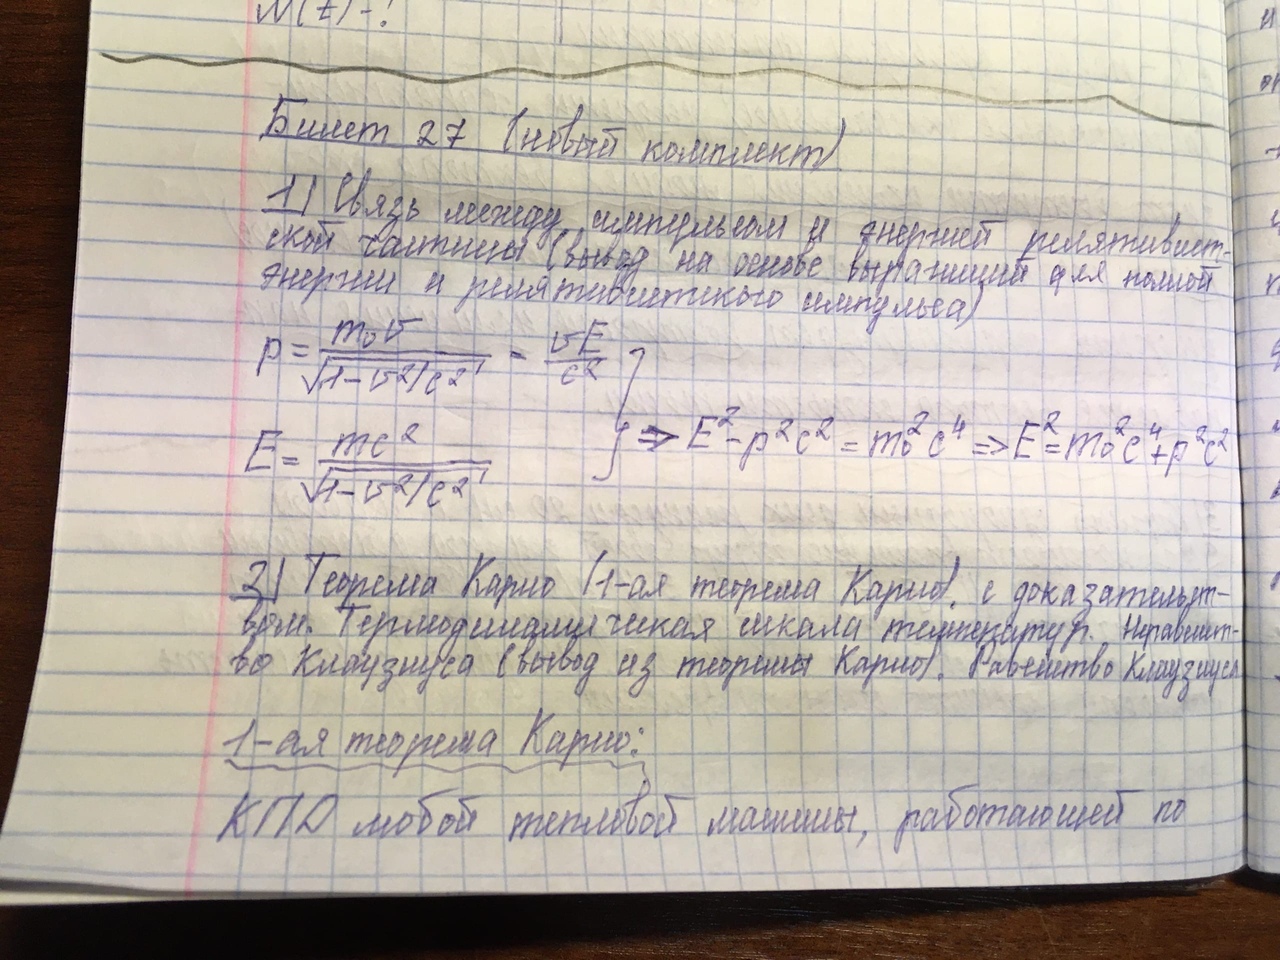 N(t)-?
Билет 27 (новый комплект)
1) Связь между импульсом и энергией релятивист-
ской частицы (вывод на основе выражений для полной
энергии и релятивистского импульса)
p = m₀v / √(1-v²/c²) = vE / c²
E = mc² / √(1-v²/c²) } => E² - p²c² = m₀²c⁴ => E² = m₀²c⁴ + p²c²
2) Теорема Карно (1-ая теорема Карно). с доказательст-
вом. Термодинамическая шкала температур. Неравенст-
во Клаузиуса (вывод из теоремы Карно). Равенство Клаузиуса
1-ая теорема Карно:
КПД любой тепловой машины, работающей по